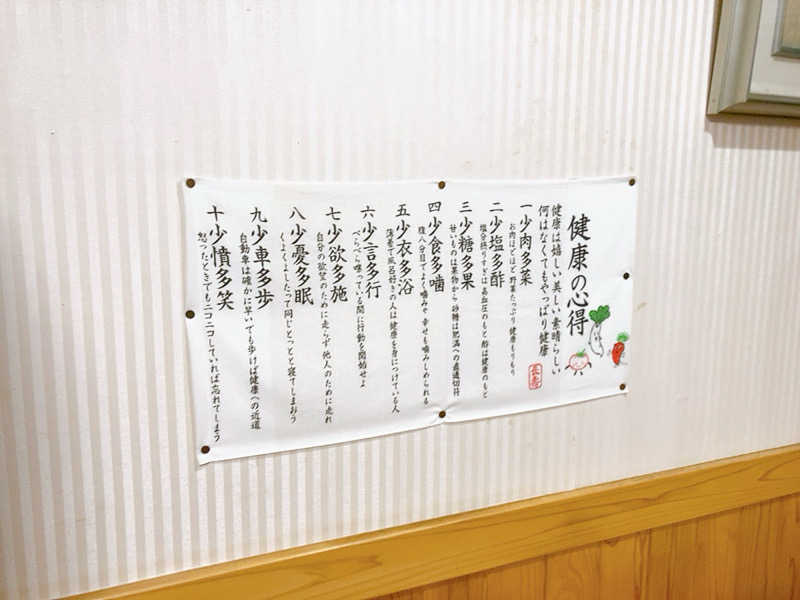 健康の心得
健康は嬉しい美しい素晴らしい
何はなくてもやっぱり健康
一 少肉多菜
お肉ほどほど 野菜たっぷり 健康もりもり
二 少塩多酢
塩分摂りすぎは高血圧のもと 酢は健康のもと
三 少糖多果
甘いものは果物から 砂糖は肥満への直通切符
四 少食多噛
腹八分目でよく噛みゃ 幸せも噛みしめられる
五 少衣多浴
薄着で風呂好きの人は健康を身につけている人
六 少言多行
べらべら喋っている間に行動を開始せよ
七 少欲多施
自分の欲望のために走らず 他人のために走れ
八 少憂多眠
くよくよしたって同じ とっとと寝てしまおう
九 少車多歩
自動車は確かに早い でも歩けば健康への近道
十 少憤多笑
怒ったときでもニコニコしていれば忘れてしまう
長寿